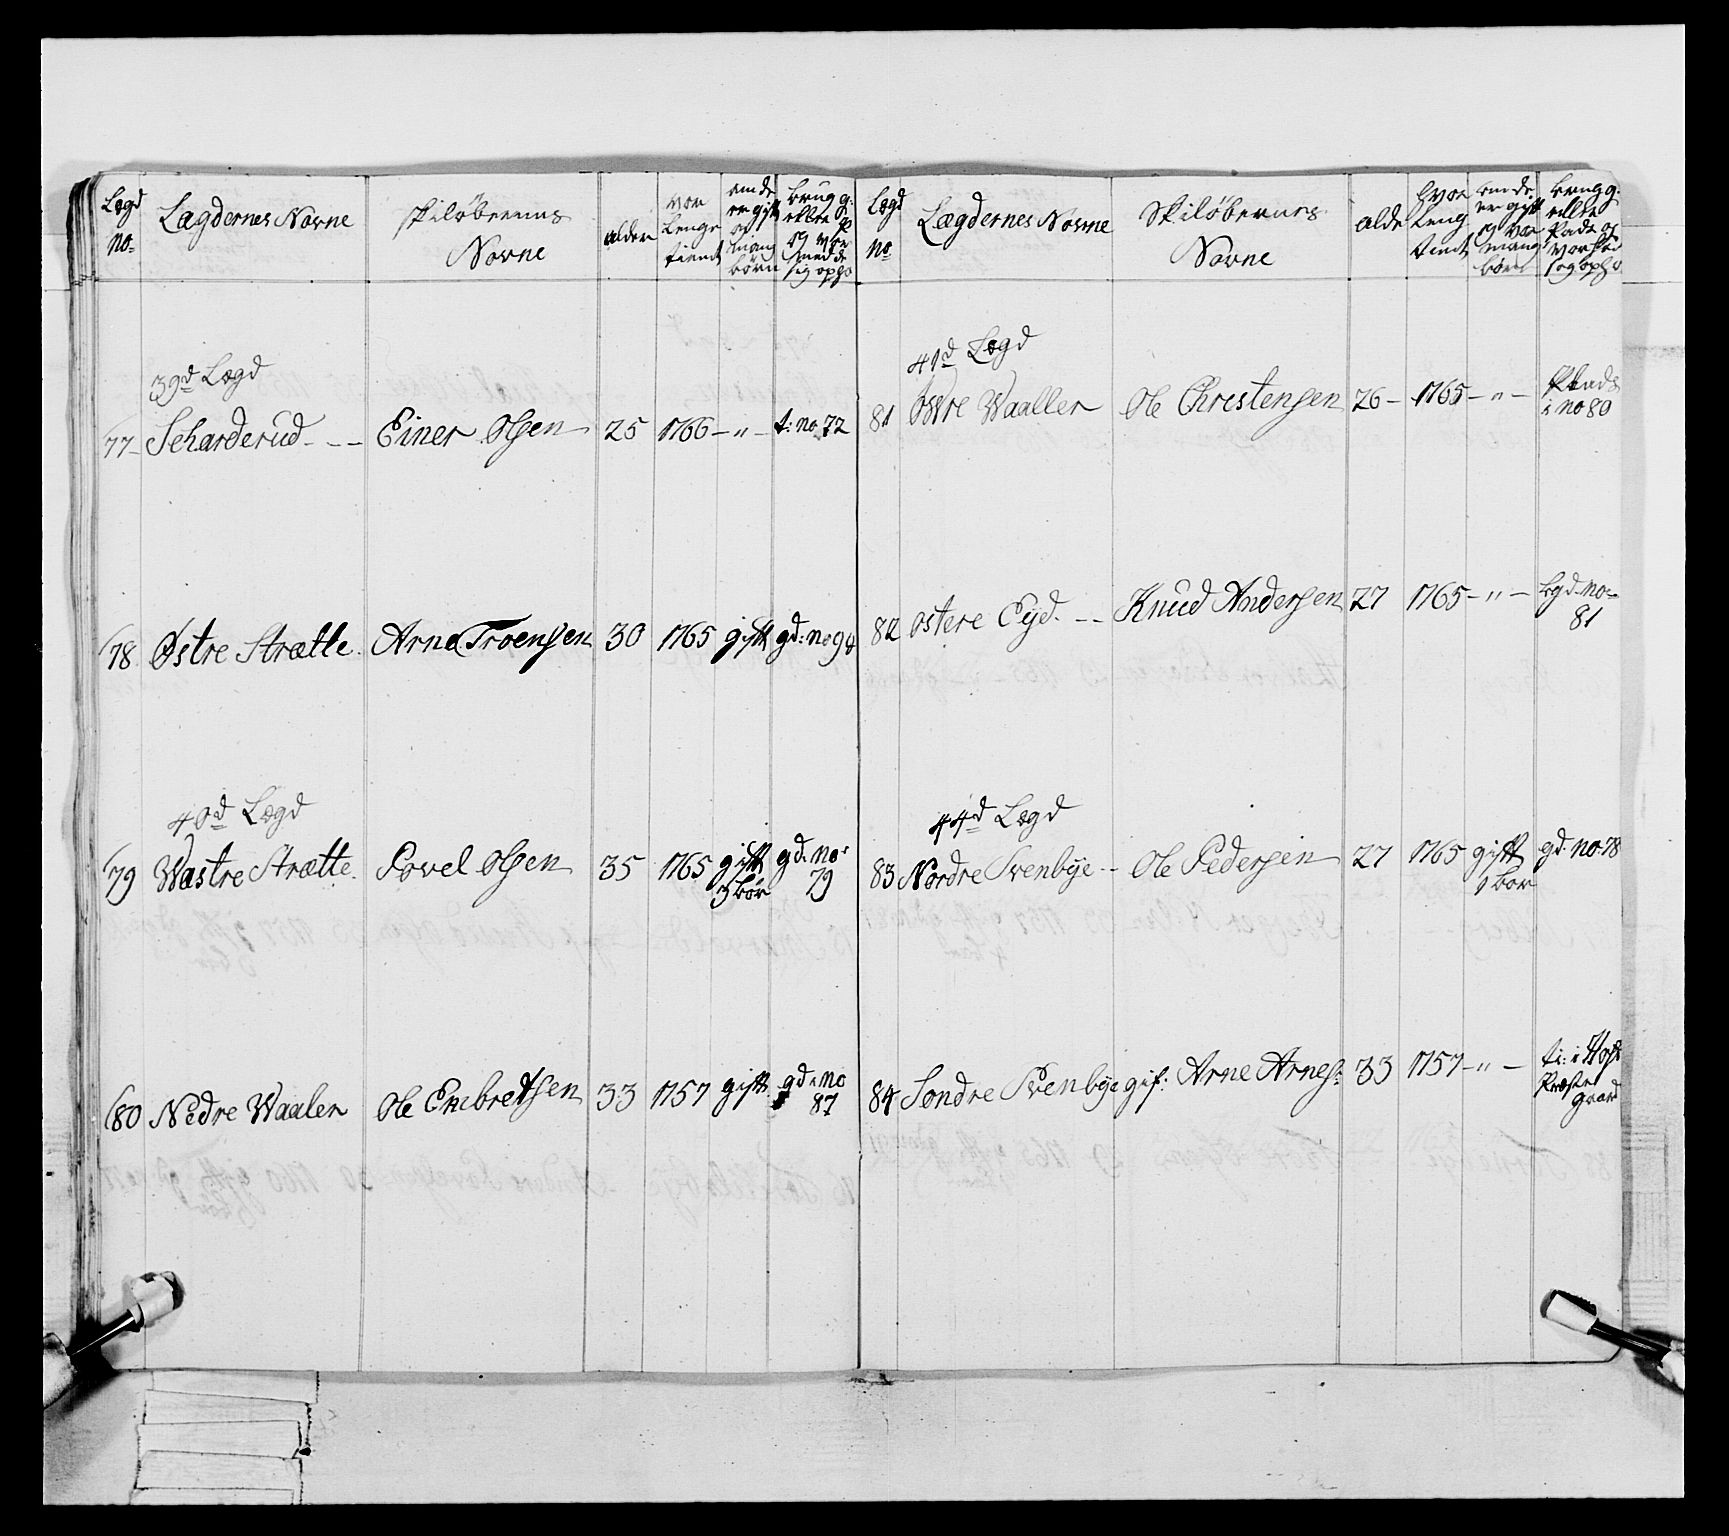 Lægd no= Lægdernes Navne Skiløbernes Navne alder vor lenge tient om de er gift og mang børn
39d Lægd
77 Scharderud - - - Einer Olsen 25 1766 - " - t: no 72
78 Østre Strætte Arne Troensen 30 1765 gift gd: no 94
40d Lægd
79 Wæstre Strætte Povel Olsen 35 1765 gift 3 bør gd. no: 79
80 Nedre Waaler Ole Embretsen 33 1757 gift gd: no 87
Lægd no Lægdernes Navne Skiløbernes Navne alde hvor leng tient om de er gift og vor mang børn
41d Lægd
81 Øvre Waaller Ole Christensen 26 - 1765 - " - Plads i no 80
82 Østere Eyd. - - Knud Andersen 27 1765 - " - Lgd no= 81
44d Lægd
83 Nordre Svenbye - - Ole Pedersen 27 1765 gift 1 bør gd. no. 78
84 Søndre Svenbye gif: Arne Arnes: 33 1757 - " -